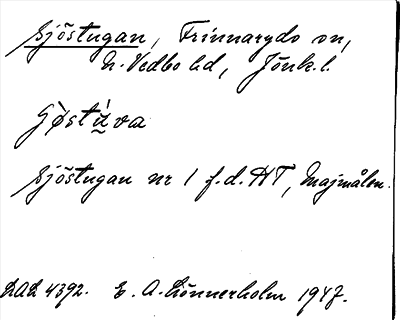 Sjöstugan, Frinnaryds sn,
N. Vedbo hd, Jönk. l.
Sjöstugan nr 1 f.d. HT, Majmålen.
DAL 4392. E. A. Lönnerholm 1947.